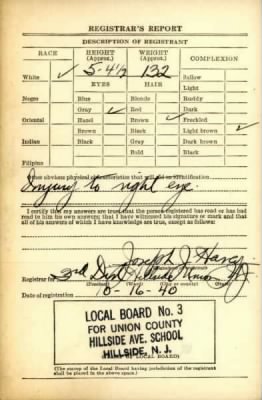 REGISTRAR'S REPORT
DESCRIPTION OF REGISTRANT
RACE HEIGHT (Approx.) WEIGHT (Approx.) COMPLEXION
White ✓ 5-4½ 132 Sallow
EYES HAIR Light
Negro Blue Blonde Ruddy
Gray ✓ Red Dark
Oriental Hazel Brown ✓ Freckled
Brown Black Light brown ✓
Indian Black Gray Dark brown
Bald Black
Filipino
Other obvious physical characteristics that will aid in identification
Injury to right eye.
I certify that my answers are true; that the person registered has read or has had
read to him his own answers; that I have witnessed his signature or mark and that
all of his answers of which I have knowledge are true, except as follows:
Joseph J.
Registrar for 3rd Dist Hillside Union NJ
(Precinct) (Ward) (City or county) (State)
Date of registration 10-16-40
LOCAL BOARD No. 3
FOR UNION COUNTY
HILLSIDE AVE. SCHOOL
HILLSIDE, N. J.
(STAMP OF LOCAL BOARD)
(The stamp of the Local Board having jurisdiction of the registrant
shall be placed in the above space.)